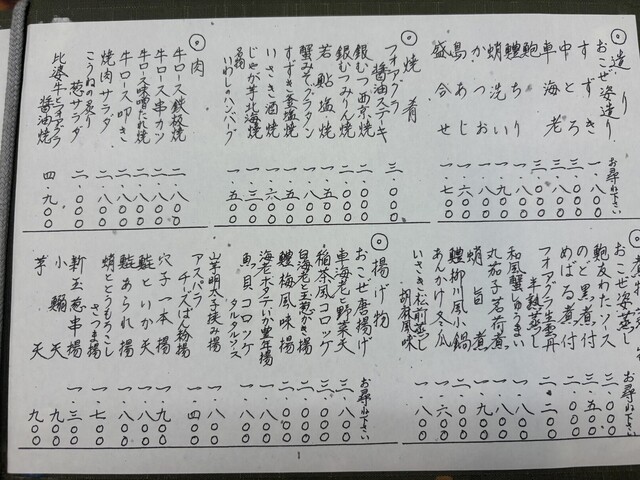 ◎造り
おこぜ姿造り お尋ね下さい
すずき 一、八〇〇
中とろ
車海老 三、〇〇〇
鮑
鱧ちり 一、八〇〇
蛸洗い 一、九〇〇
かつお 一、八〇〇
島あじ 一、六〇〇
盛合せ 一、七〇〇
◎焼肴
フォアグラ
醤油ステキ 三、〇〇〇
銀むつ西京焼 二、〇〇〇
銀むつみりん焼 二、〇〇〇
若鮎塩焼 一、五〇〇
蟹みそグラタン 一、八〇〇
すずき釜塩焼 一、五〇〇
いさき酒焼 一、六〇〇
じゃが芋北海焼 一、三〇〇
いわしのハンバーグ 一、五〇〇
◎肉
牛ロース鉄板焼 二、八〇〇
牛ロース串カツ 二、〇〇〇
牛ロース味噌たれ焼 二、八〇〇
牛ロース叩き 二、八〇〇
焼肉サラダ 二、八〇〇
こうねの炙り
葱サラダ 二、〇〇〇
比婆牛とフォアグラ
醤油焼 四、九〇〇
めばる煮付 お尋ね下さい
のど黒煮付
鮑友わたソース 三、五〇〇
フォアグラ生雲丹
半熟蒸し 二、二〇〇
和風蟹しゅうまい 一、八〇〇
丸茄子茗荷煮
蛸旨煮 一、九〇〇
鱧柳川風小鍋 一、八〇〇
あんかけ冬瓜 一、六〇〇
いさき松前蒸し
胡麻風味 一、八〇〇
◎揚げ物
おこぜ唐揚げ お尋ね下さい
車海老と野菜天 三、八〇〇
稲茶風コロッケ
白海老と玉葱かき揚
鱧梅風味揚 二、〇〇〇
海老ホタテいか豊年揚 一、八〇〇
魚貝コロッケ
タルタルソース 一、八〇〇
山芋明太子挟み揚 一、四〇〇
アスパラ
チーズぱん粉揚 一、八〇〇
穴子一本揚 一、九〇〇
鮭といか天 一、八〇〇
鮭あられ揚 一、八〇〇
蛸ととうもろこし
さつま揚 一、七〇〇
新玉葱串揚 一、三〇〇
小鰯天 九〇〇
芋天 九〇〇
1